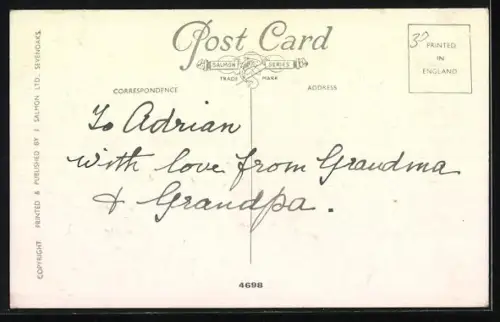 Post Card
SALMON SERIES
TRADE MARK
3D PRINTED
IN
ENGLAND
CORRESPONDENCE ADDRESS
To Adrian
with love from Grandma
& Grandpa.
COPYRIGHT PRINTED & PUBLISHED BY J SALMON LTD., SEVENOAKS.
4698